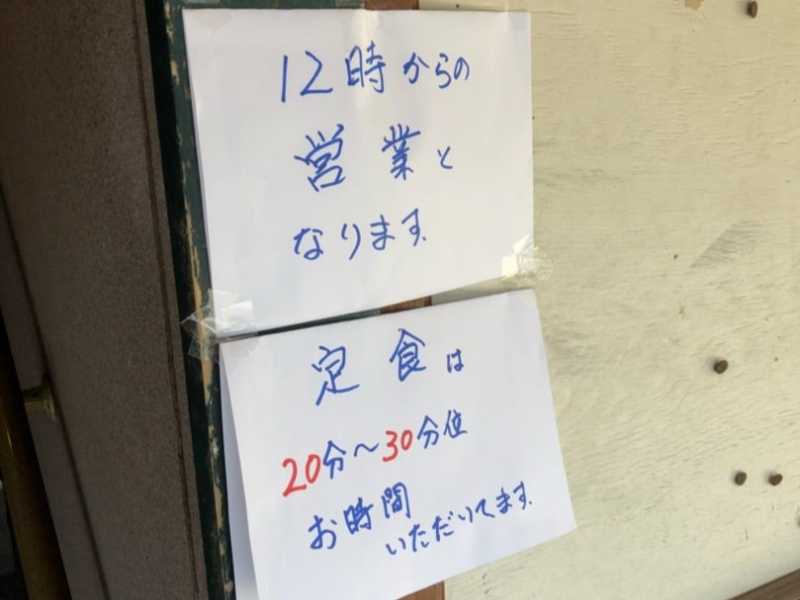 12時からの
営業と
なります.
定食は
20分〜30分位
お時間
いただいてます.